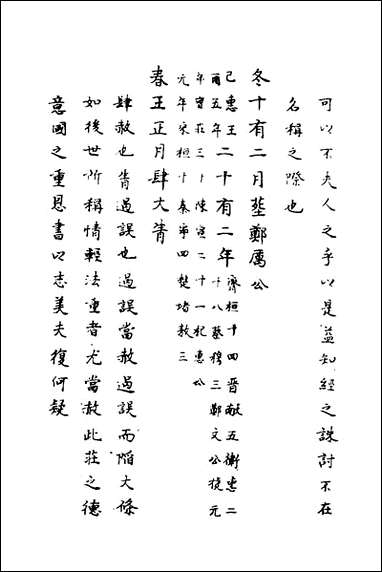 可以不夫人之乎以是益知經之誅討不在
名稱之際也
冬十有二月塟鄭厲公
己惠王
酉五年
二十有二年
齊桓十四晉獻五衛惠二
十八蔡穆三鄭文公捷元
年曹莊三十陳宣二十一杞惠公
元年宋桓十秦宣四楚堵敖三
春王正月肆大眚
肆赦也眚過誤也過誤當赦過誤而陷大條
如後世所稱情輕法重者尤當赦此莊之德
意國之重恩書以志美夫復何疑